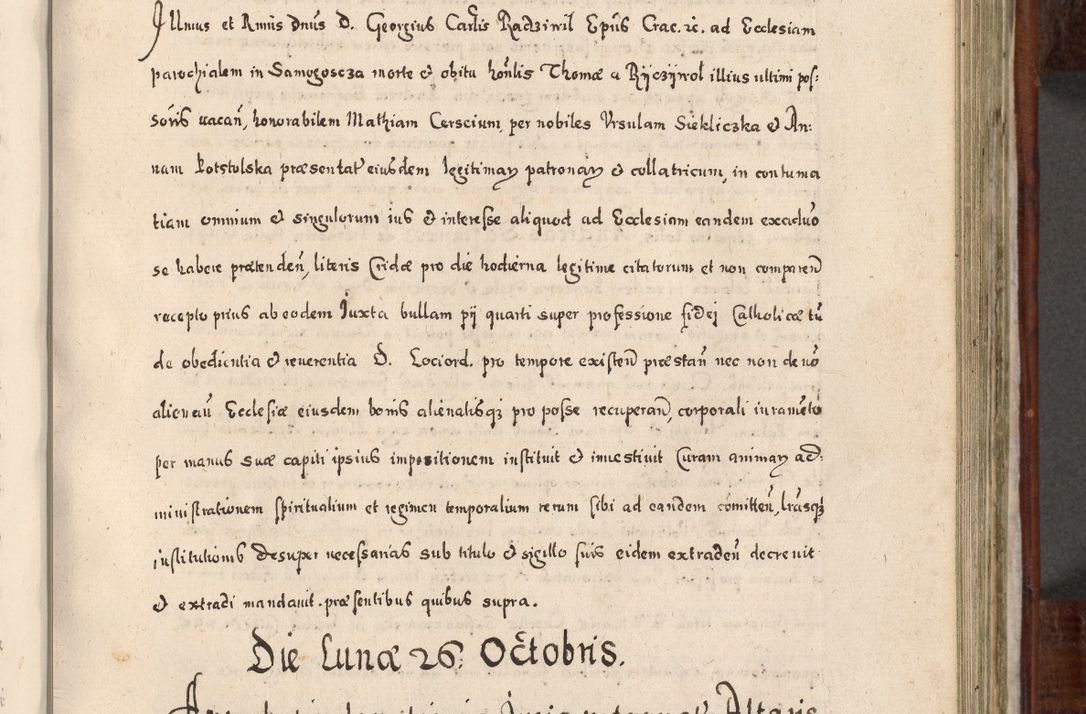 Illmus et Rmus Dnus D. Georgius Carlis Radziwil Epus Crac. ic. ad Ecclesiam
parochialem in Samogoscza morte & obitu honlis Thomæ a Ryczywol illius ultimi pos:
soris uacan, honorabilem Mathiam Cerscium, per nobiles Vrsulam Siekliczka & An:
nam Potstolska præsentat eiusdem legitimay patronay & collatricum, in contuma
tiam omnium & singulorum ius & interesse aliquod ad Ecclesiam eandem exaduo
se habere prætenden, literis Cridæ pro die hodierna legitime citatorum et non comparen
recepto prius ab eodem Iuxta bullam pij quarti super professione fidej Catholicæ tu
de obedientia & reuerentia D. Lociord. pro tempore existen præstan nec non de no
alienan Ecclesiæ eiusdem bonis alienatisqz pro posse recuperan, corporali iuramēto
per manus suæ capiti ipsius impositionem instituit & inuestiuit Curam animay ad:
ministrationem spiritualium et regimen temporalium rerum sibi ad eandem comitten, lrasqz
institutionis desuper necessarias sub titulo & sigillo suis eidem extraden decreuit
& extradi mandauit. præsentibus quibus supra.
Die Lunæ 26. Octobris.